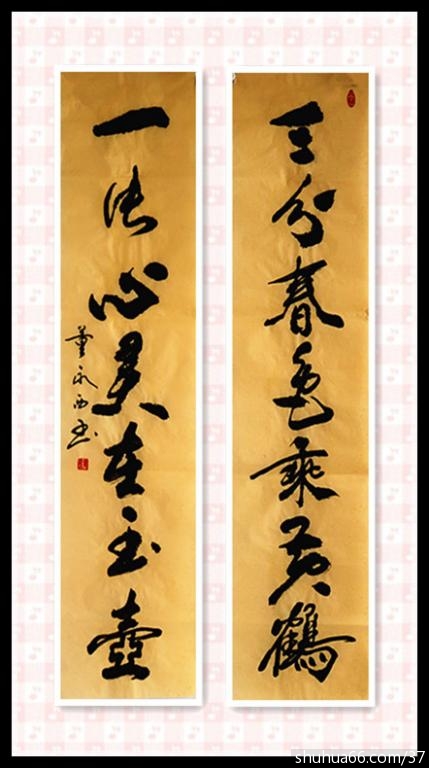 三分春色乘黄鹤
一心灵在玉壶
董永西书
shuhua66.com/37